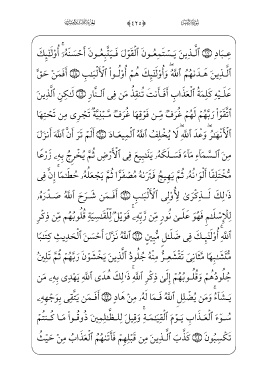 ﴿٤٢٥﴾
عِبَادِ الَّذِينَ يَسْتَمِعُونَ الْقَوْلَ فَيَتَّبِعُونَ أَحْسَنَهُۥٓ أُو۟لَٰٓئِكَ
الَّذِينَ هَدَىٰهُمُ اللَّهُ وَأُو۟لَٰٓئِكَ هُمْ أُو۟لُوا۟ الْأَلْبَٰبِ أَفَمَنْ حَقَّ
عَلَيْهِ كَلِمَةُ الْعَذَابِ أَفَأَنتَ تُنقِذُ مَن فِى النَّارِ لَٰكِنِ الَّذِينَ
اتَّقَوْا۟ رَبَّهُمْ لَهُمْ غُرَفٌ مِّن فَوْقِهَا غُرَفٌ مَّبْنِيَّةٌ تَجْرِى مِن تَحْتِهَا
الْأَنْهَٰرُ وَعْدَ اللَّهِ لَا يُخْلِفُ اللَّهُ الْمِيعَادَ أَلَمْ تَرَ أَنَّ اللَّهَ أَنزَلَ
مِنَ السَّمَآءِ مَآءً فَسَلَكَهُۥ يَنَٰبِيعَ فِى الْأَرْضِ ثُمَّ يُخْرِجُ بِهِۦ زَرْعًا
مُّخْتَلِفًا أَلْوَٰنُهُۥ ثُمَّ يَهِيجُ فَتَرَىٰهُ مُصْفَرًّا ثُمَّ يَجْعَلُهُۥ حُطَٰمًا إِنَّ فِى
ذَٰلِكَ لَذِكْرَىٰ لِأُو۟لِى الْأَلْبَٰبِ أَفَمَن شَرَحَ اللَّهُ صَدْرَهُۥ
لِلْإِسْلَٰمِ فَهُوَ عَلَىٰ نُورٍ مِّن رَّبِّهِۦ فَوَيْلٌ لِّلْقَٰسِيَةِ قُلُوبُهُم مِّن ذِكْرِ
اللَّهِ أُو۟لَٰٓئِكَ فِى ضَلَٰلٍ مُّبِينٍ اللَّهُ نَزَّلَ أَحْسَنَ الْحَدِيثِ كِتَٰبًا
مُّتَشَٰبِهًا مَّثَانِىَ تَقْشَعِرُّ مِنْهُ جُلُودُ الَّذِينَ يَخْشَوْنَ رَبَّهُمْ ثُمَّ تَلِينُ
جُلُودُهُمْ وَقُلُوبُهُمْ إِلَىٰ ذِكْرِ اللَّهِ ذَٰلِكَ هُدَى اللَّهِ يَهْدِى بِهِۦ مَن
يَشَآءُ وَمَن يُضْلِلِ اللَّهُ فَمَا لَهُۥ مِنْ هَادٍ أَفَمَن يَتَّقِى بِوَجْهِهِۦ
سُوٓءَ الْعَذَابِ يَوْمَ الْقِيَٰمَةِ وَقِيلَ لِلظَّٰلِمِينَ ذُوقُوا۟ مَا كُنتُمْ
تَكْسِبُونَ كَذَّبَ الَّذِينَ مِن قَبْلِهِمْ فَأَتَىٰهُمُ الْعَذَابُ مِنْ حَيْثُ